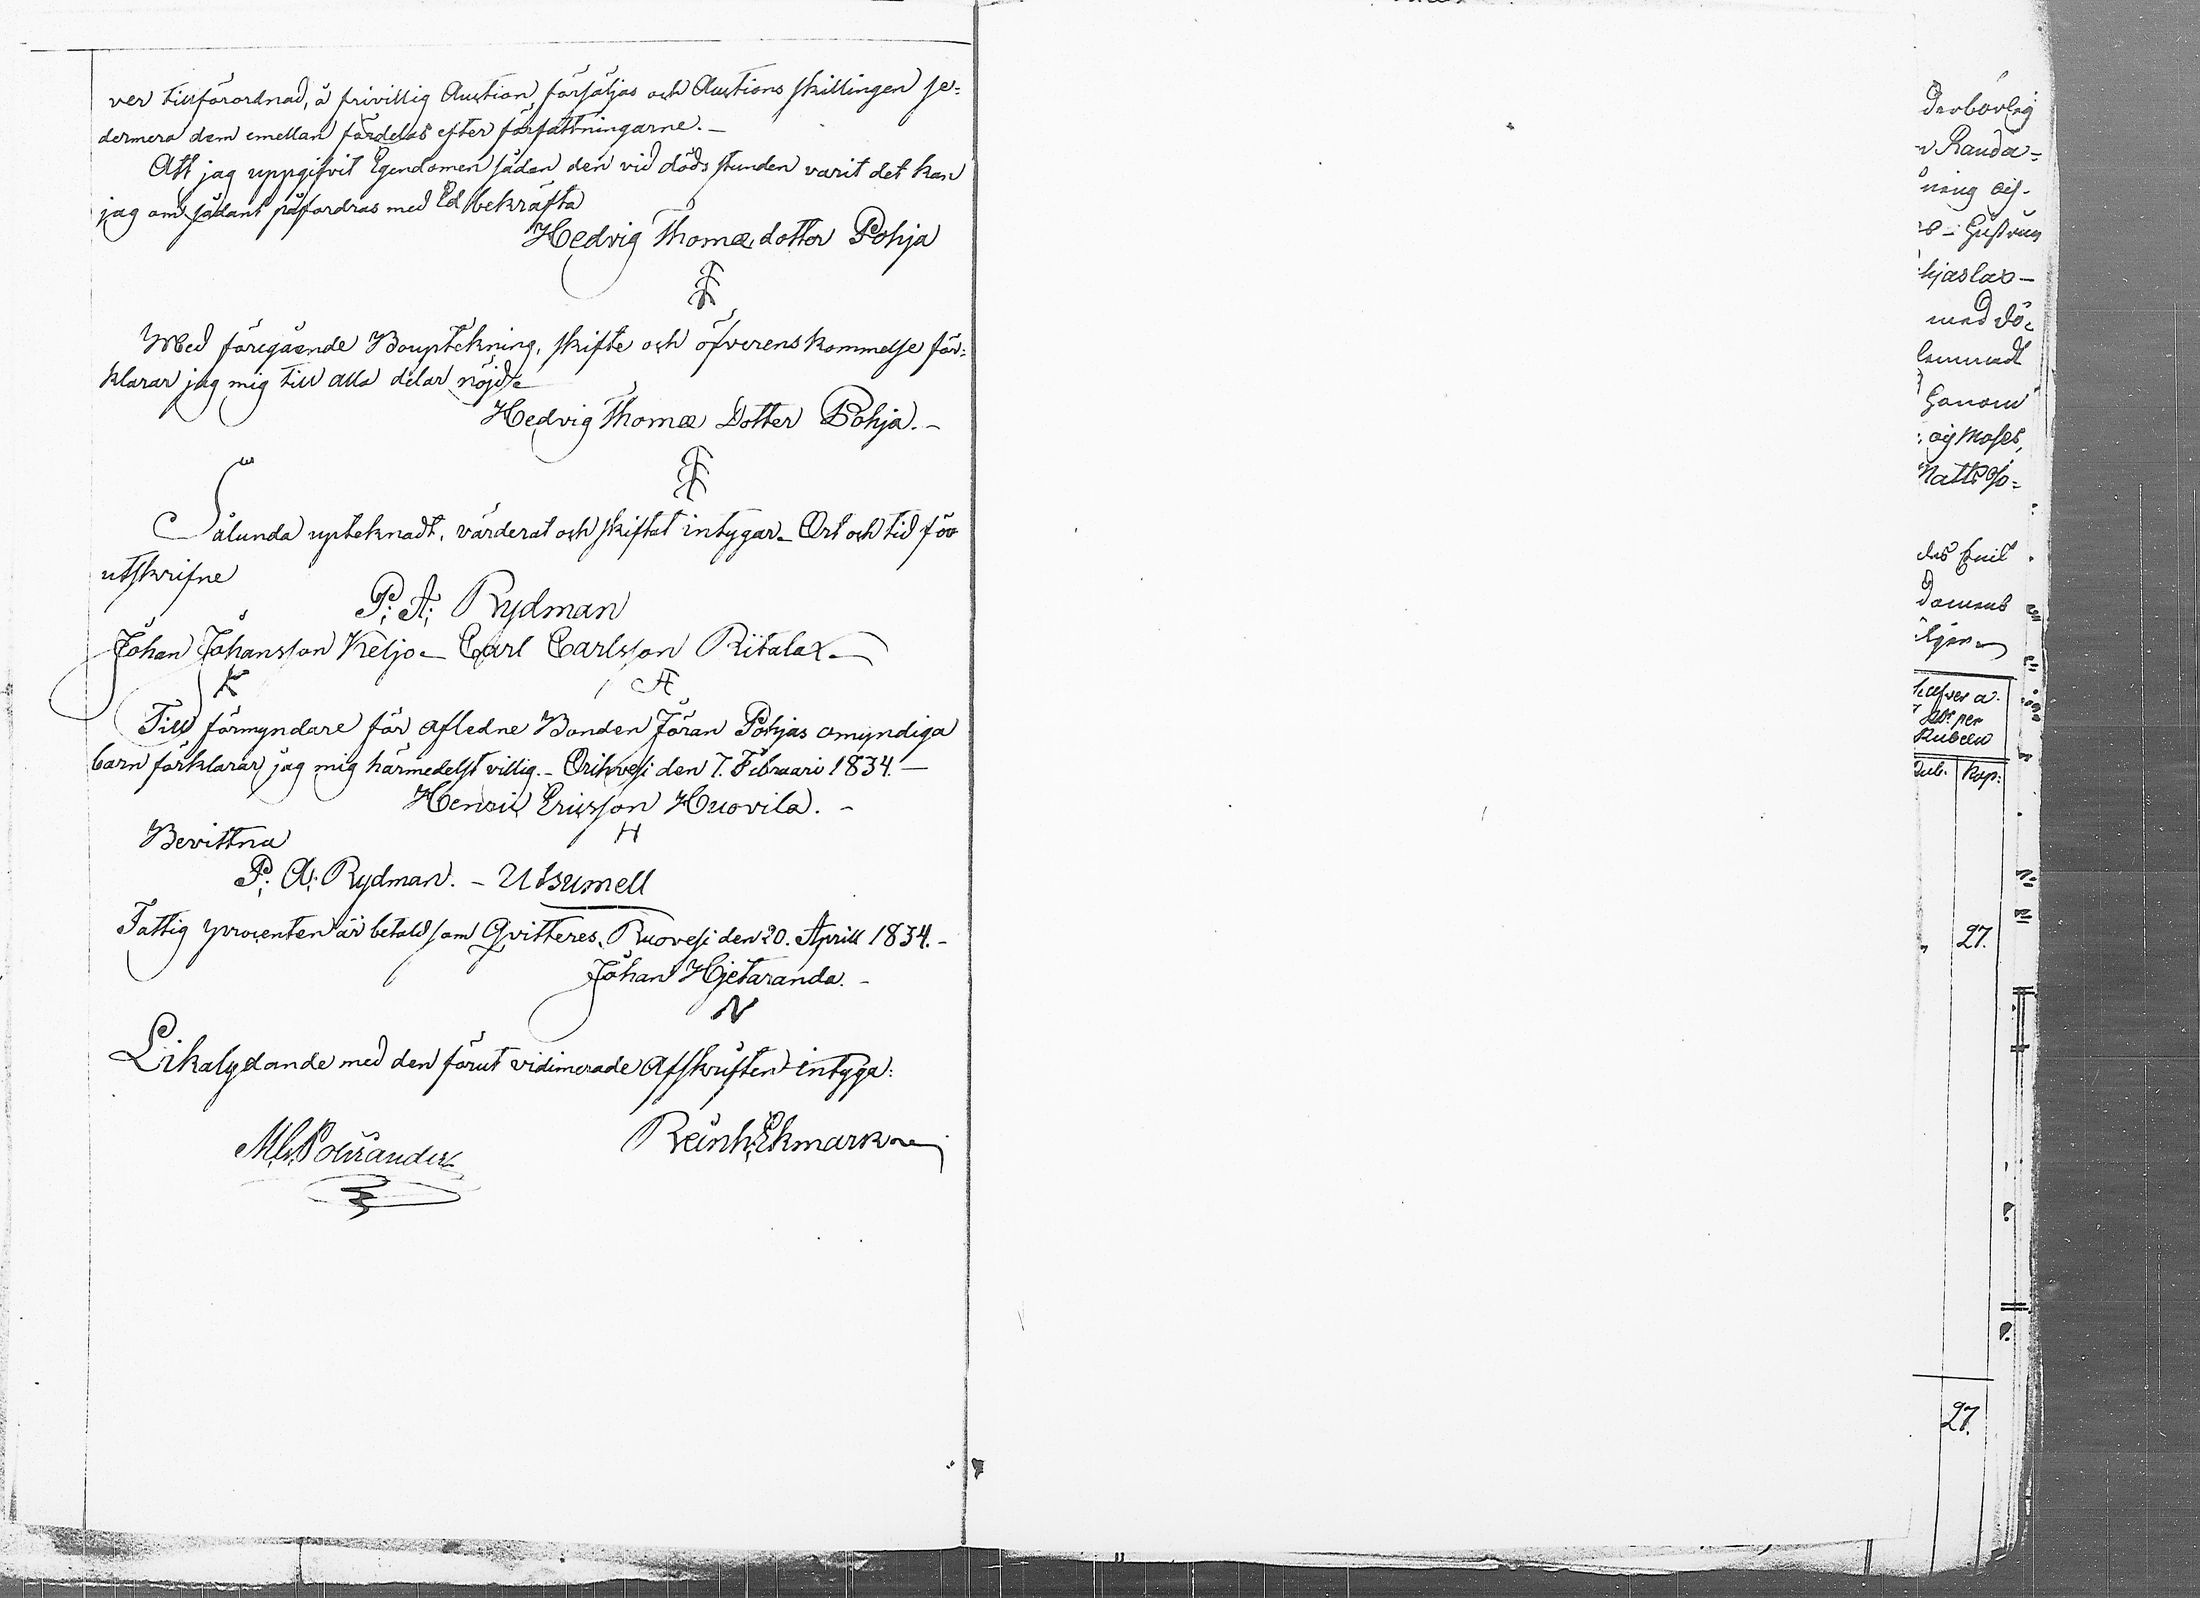 ver tillförordnad, å frivillig Auction, försäljas och Auctions skillingen se=
dermera dem emellan fördelas efter författningarne.—
Att jag uppgifvit Egendomen sådan den vid döds stunden varit det kan
jag om sådant påfordras med Ed bekräfta
Hedvig Thomæ dotter Pohja
Med föregående Bouptekning, skifte och öfverenskommelse för=
klarar jag mig till alla delar nöjd
Hedvig Thomæ Dotter Pohja.—
Sålunda upteknadt, värderat och skiftat intygar. Ort och tid för
utskrifne
P: A: Rydman
Johan Johansson Keljo — Carl Carlsson Ritalax —
K A
Till förmyndare för afledne Bonden Jöran Pohjas omyndiga
barn förklarar jag mig härmedelst villig.— Orihvesi den 7. Februari 1834.—
Henric Ericsson Huovila.—
H
Bevittna
P: A: Rydman. — Utsumell
Fattig procenten är betald som Qvitteres. Ruovesi den 20. Aprill 1834.—
Johan Hjetaranda.—
N
Likalydande med den förut vidimerade Afskriften intyga:
Reinh. Ekmark
derbörlig
Randa=
ning och
Gustava
hjaslax—
med dö=
lemnadt
Genom
och Moses,
Matts Jo=
Rubeln
Kop:
27.
27.